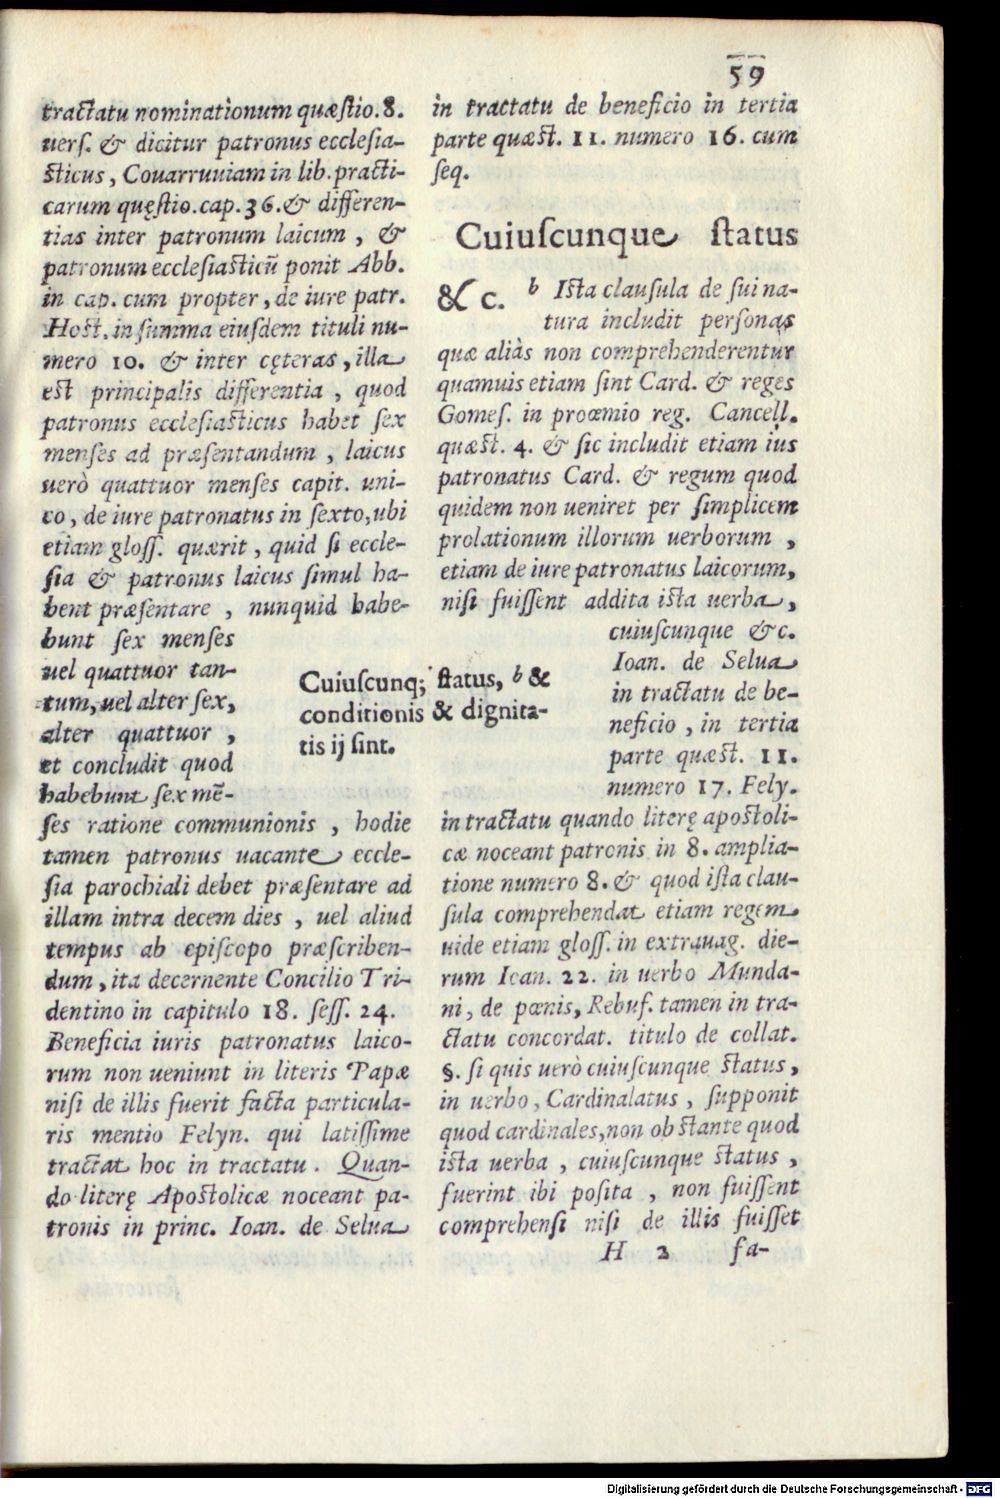 59
tractatu nominationum quæstio. 8.
uers. & dicitur patronus ecclesia-
sticus, Couarruuiam in lib. practi-
carum quęstio. cap. 36. & differen-
tias inter patronum laicum, &
patronum ecclesiasticũ ponit Abb.
in cap. cum propter, de iure patr.
Host. in summa eiusdem tituli nu-
mero 10. & inter cęteras, illa
est principalis differentia, quod
patronus ecclesiasticus habet sex
menses ad præsentandum, laicus
uerò quattuor menses capit. uni-
co, de iure patronatus in sexto, ubi
etiam gloss. quærit, quid si eccle-
sia & patronus laicus simul ha-
bent præsentare, nunquid habe-
bunt sex menses
uel quattuor tan-
tum, uel alter sex,
alter quattuor,
et concludit quod
habebunt sex mẽ-
ses ratione communionis, hodie
tamen patronus uacante eccle-
sia parochiali debet præsentare ad
illam intra decem dies, uel aliud
tempus ab episcopo præscriben-
dum, ita decernente Concilio Tri-
dentino in capitulo 18. sess. 24.
Beneficia iuris patronatus laico-
rum non ueniunt in literis Papæ
nisi de illis fuerit facta particula-
ris mentio Felyn. qui latissime
tractat hoc in tractatu. Quan-
do literę Apostolicæ noceant pa-
tronis in princ. Ioan. de Selua
Cuiuscunq; status, b &
conditionis & dignita-
tis ij sint.
in tractatu de beneficio in tertia
parte quæst. 11. numero 16. cum
seq.
Cuiuscunque status
&c. b Ista clausula de sui na-
tura includit personas
quæ aliàs non comprehenderentur
quamuis etiam sint Card. & reges
Gomes. in proœmio reg. Cancell.
quæst. 4. & sic includit etiam ius
patronatus Card. & regum quod
quidem non ueniret per simplicem
prolationum illorum uerborum,
etiam de iure patronatus laicorum,
nisi fuissent addita ista uerba,
cuiuscunque &c.
Ioan. de Selua
in tractatu de be-
neficio, in tertia
parte quæst. 11.
numero 17. Fely.
in tractatu quando literę apostoli-
cæ noceant patronis in 8. amplia-
tione numero 8. & quod ista clau-
sula comprehendat etiam regem
uide etiam gloss. in extrauag. die-
rum Ioan. 22. in uerbo Munda-
ni, de pœnis, Rebuf. tamen in tra-
ctatu concordat. titulo de collat.
§. si quis uerò cuiuscunque status,
in uerbo, Cardinalatus, supponit
quod cardinales, non obstante quod
ista uerba, cuiuscunque status,
fuerint ibi posita, non fuissent
comprehensi nisi de illis fuisset
H 2 fa-
Digitalisierung gefördert durch die Deutsche Forschungsgemeinschaft - DFG